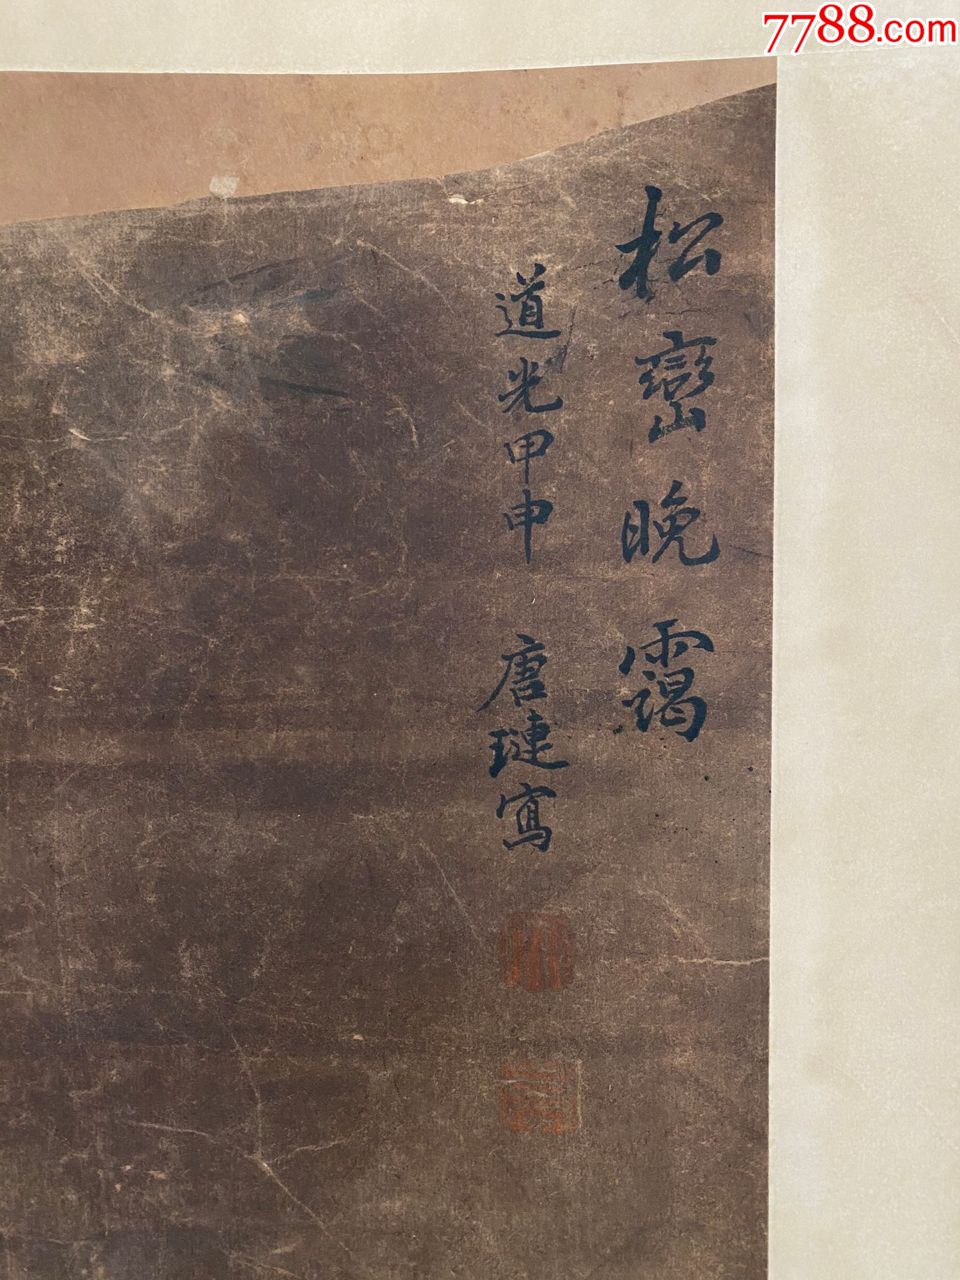 7788.com
松巒晚靄
道光甲申
唐璉寫